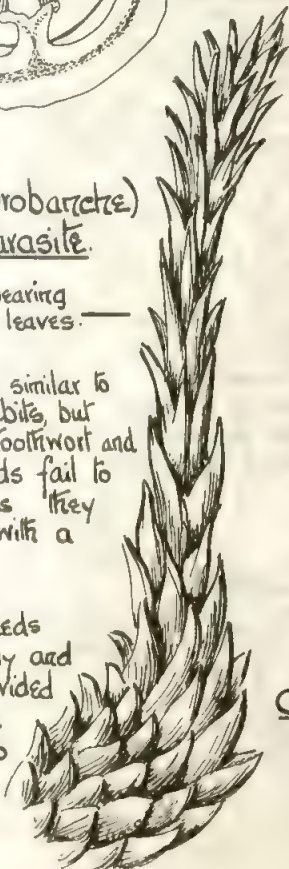 robanche)
arasite.
earing
leaves.
similar to
bits, but
oothwort and
ds fail to
s they
with a
eds
y and
vided